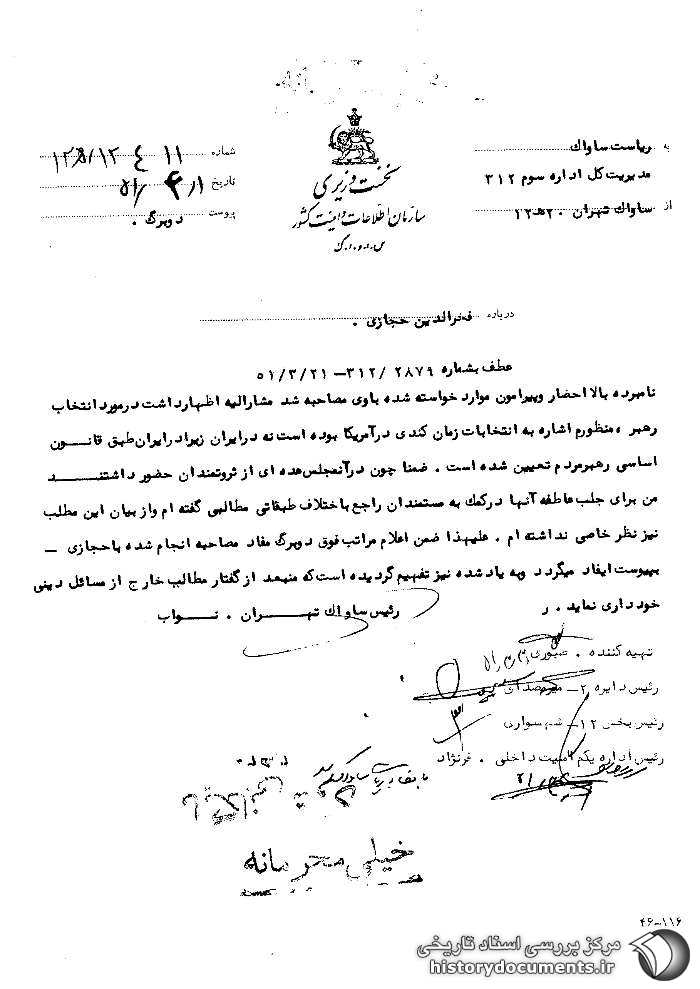 به ریاست ساواک
مدیریت کل اداره سوم ۳۱۲
از ساواک تهران ۲۰هـ ۱۲
نخست وزیری
سازمان اطلاعات و امنیت کشور
س.ا.و.ا.ک
شماره
تاریخ
پیوست دوبرگ .
درباره فخرالدین حجازی .
عطف بشماره ۲۸۷۹ /۳۱۲ – ۵۱/۳/۲۱
نامبرده بالا احضار و پیرامون موارد خواسته شده باوی مصاحبه شد مشارالیه اظهارداشت درمورد انتخاب
رهبر ، منظورم اشاره به انتخابات زمان کندی درآمریکا بوده است نه درایران زیرا درایران طبق قانون
اساسی رهبر مردم تعیین شده است . ضمنا چون درآنمجلس عده ای از ثروتمندان حضور داشتند
من برای جلب عاطفه آنها درکمک به مستمندان راجع باختلاف طبقاتی مطالبی گفته ام واز بیان این مطلب
نیز نظر خاصی نداشته ام . علیهذا ضمن اعلام مراتب فوق دوبرگ مفاد مصاحبه انجام شده با حجازی –
بپیوست ایفاد میگردد وبه یاد شده نیز تفهیم گردیده است که منبعد از گفتار مطالب خارج از مسائل دینی
خودداری نماید . ر
رئیس ساواک تهران . نواب
تهیه کننده . صبوری
رئیس دایره ۲ –
رئیس بخش ۱۲ – شهسواری
رئیس اداره یکم امنیت داخلی .
بایگانی شود
خیلی محرمانه
۴۶-۱۱۶
مرکز بررسی اسناد تاریخی
historydocuments.ir